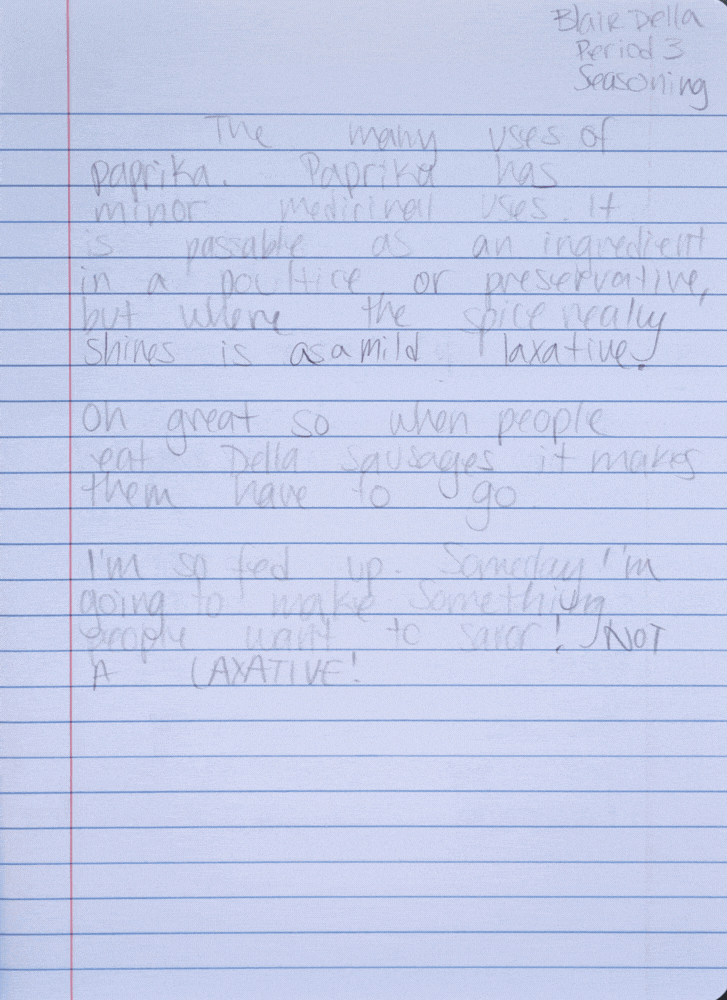 Blair Della
Period 3
Seasoning
The many uses of
paprika. Paprika has
minor medicinal uses. It
is passable as an ingredient
in a poultice or preservative,
but where the spice really
shines is as a mild laxative.
Oh great so when people
eat Della sausages it makes
them have to go
I'm so fed up. Someday I'm
going to make something
people want to savor! NOT
A LAXATIVE!